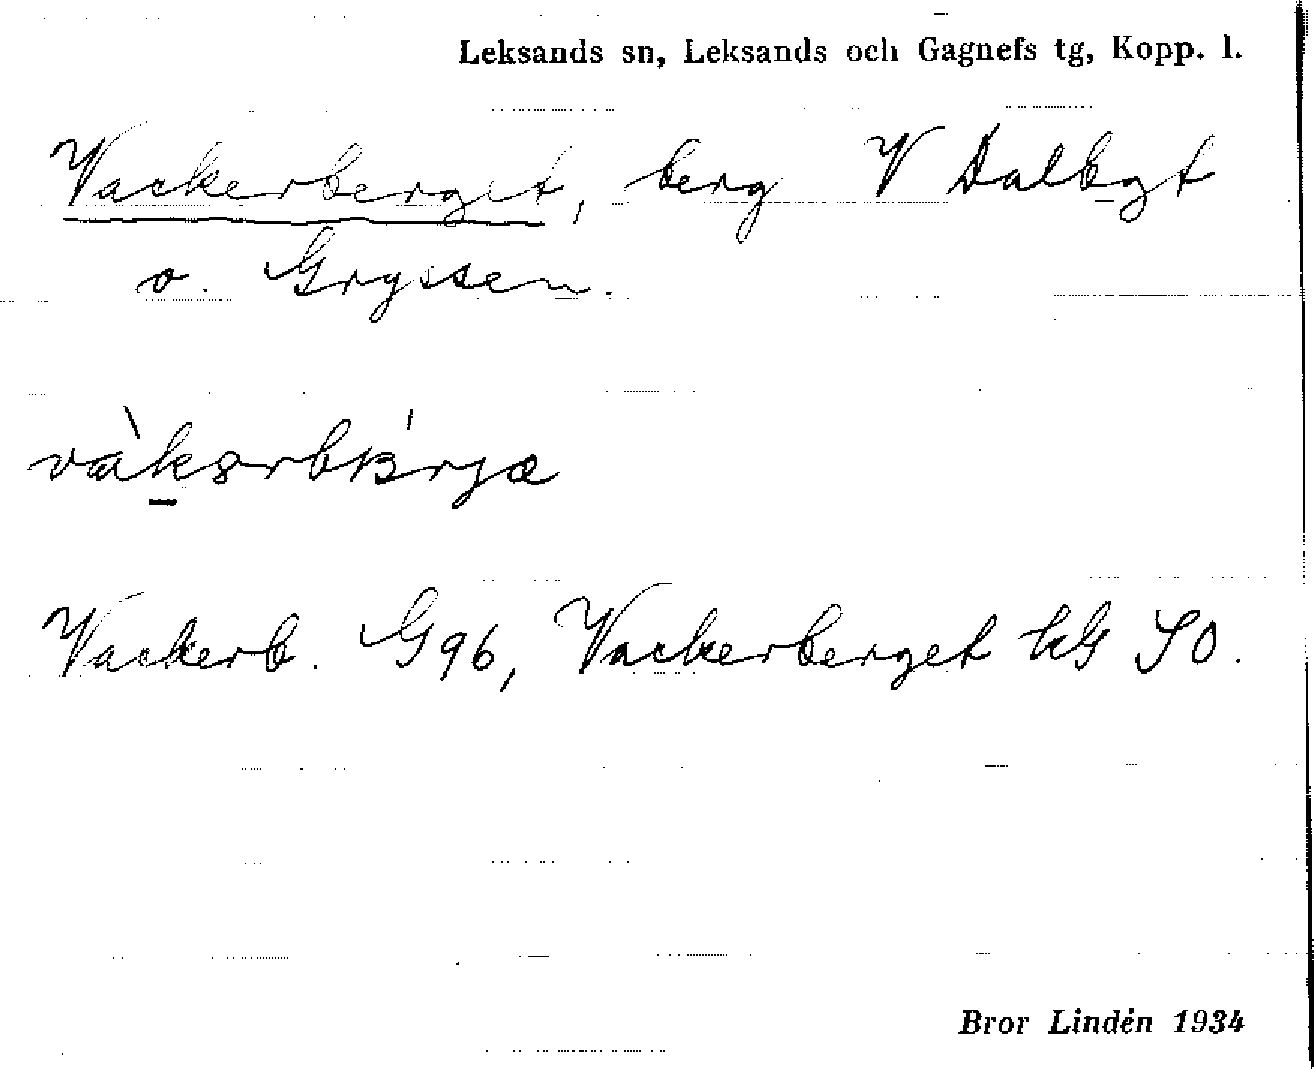 Leksands sn, Leksands och Gagnefs tg, Kopp. l.
Vackerberget, berg V Dalbgt
o. Gryssen.
Vackerb. G96, Vackerberget kG SO.
Bror Lindén 1934